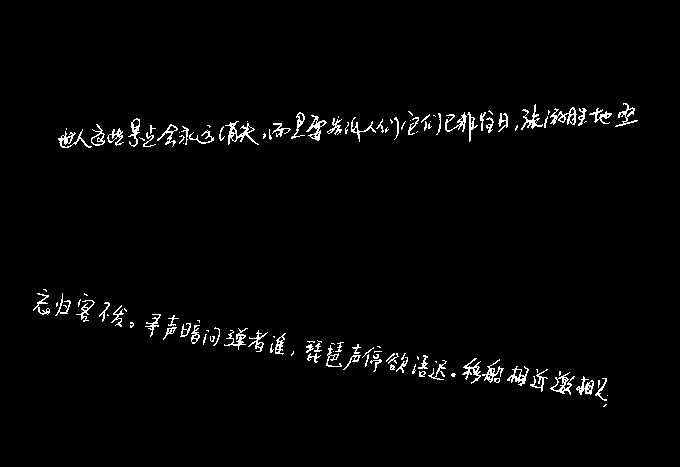 世人这些景点会永远消失,而是要告诉人们它们已非往日,旅游胜地亚
忘归客不发。寻声暗问弹者谁,琵琶声停欲语迟。移船相近邀相见,